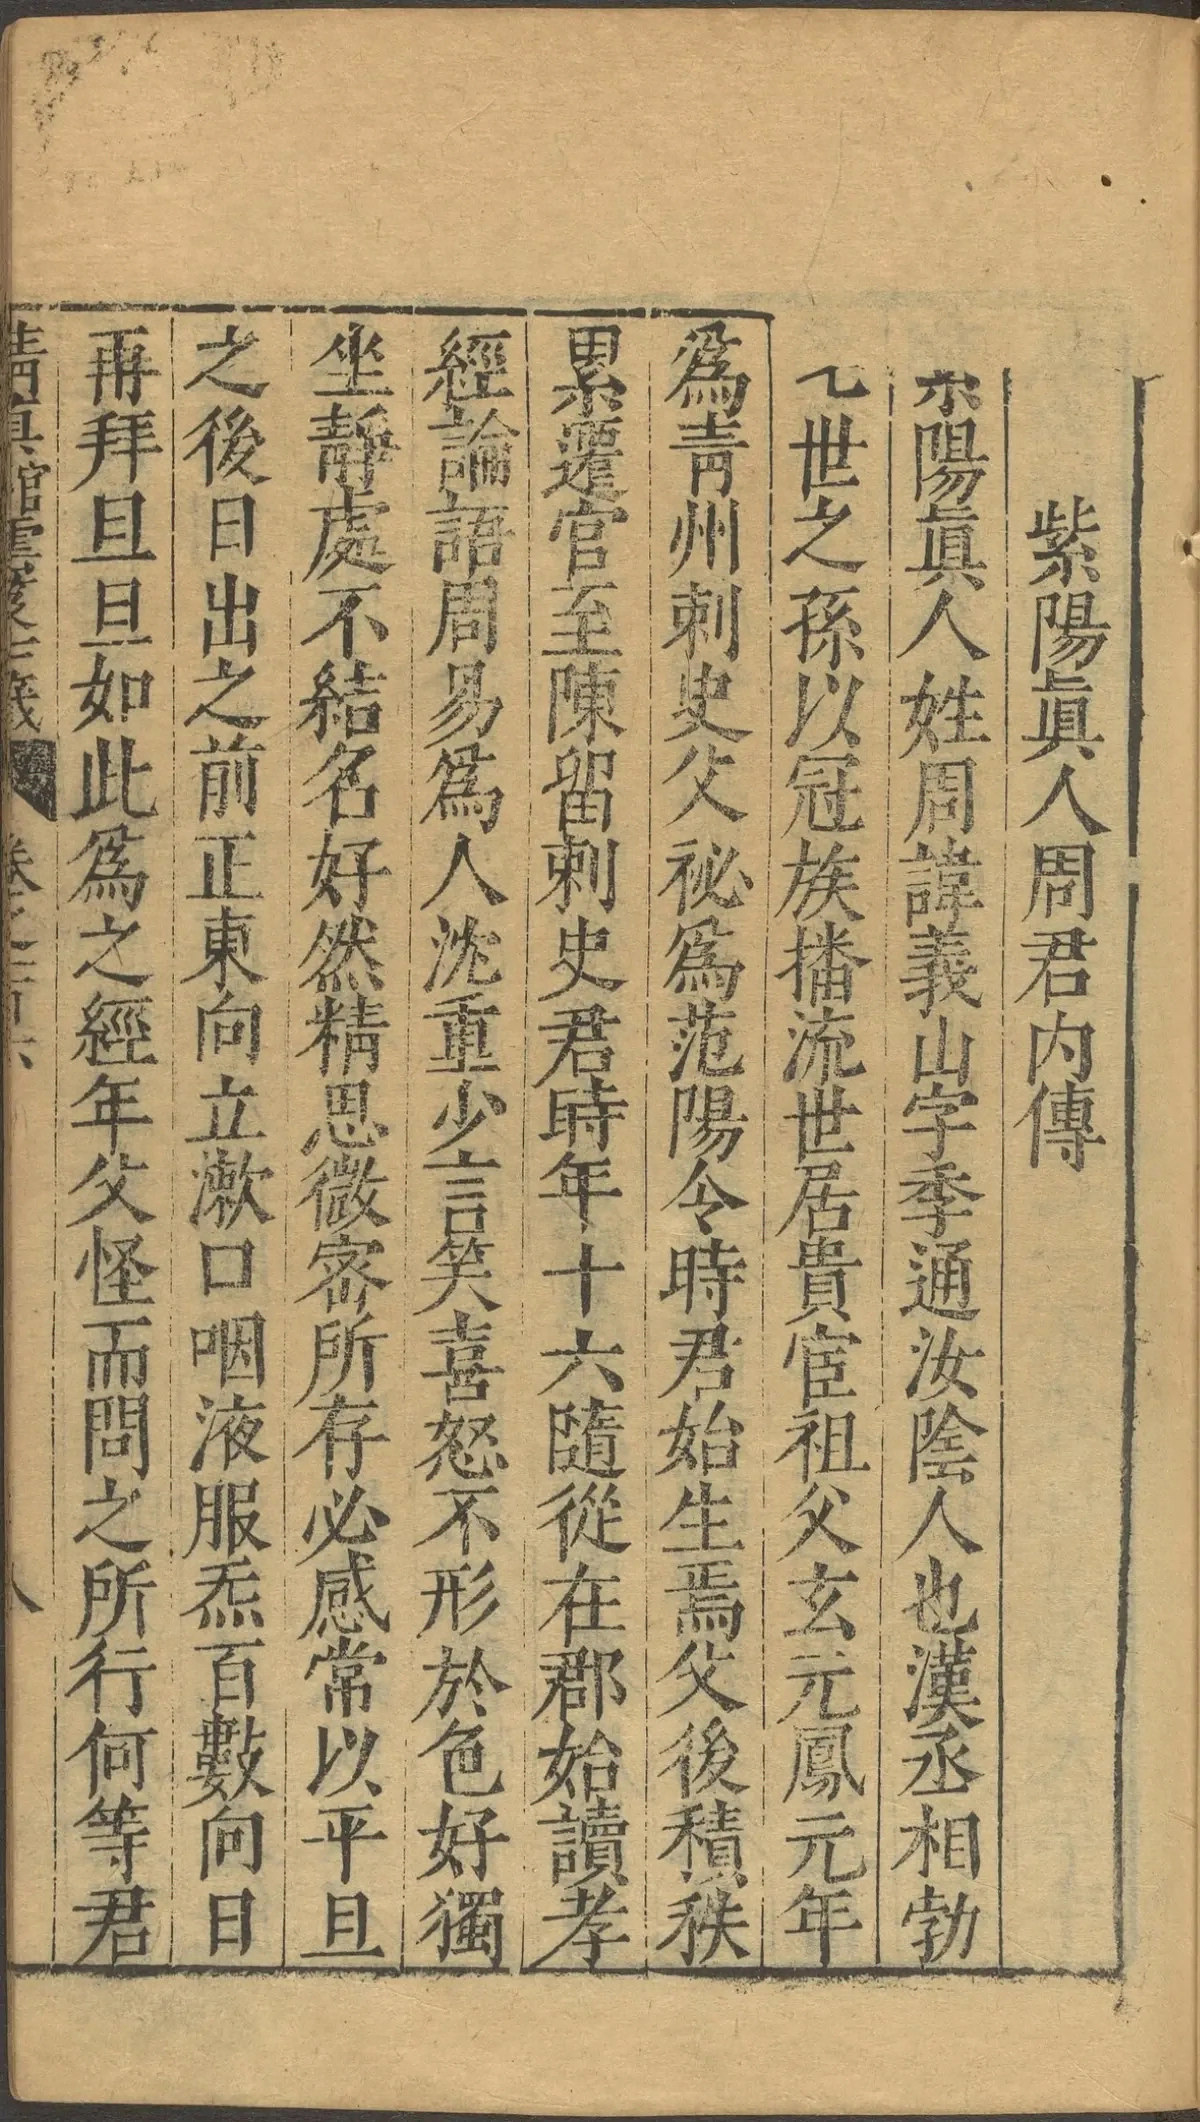 紫陽眞人周君内傳
紫陽眞人姓周諱義山字季通汝陰人也漢丞相勃
七世之孫以冠族播流世居貴宦祖父玄元鳳元年
爲青州刺史父祕爲范陽令時君始生焉父後積秩
累遷官至陳留刺史君時年十六隨從在郡始讀孝
經論語周易爲人沈重少言笑喜怒不形於色好獨
坐靜處不結名好然精思微密所存必感常以平旦
之後日出之前正東向立漱口咽液服炁百數向日
再拜旦旦如此爲之經年父怪而問之所行何等君
清眞館雲笈七籤 卷之一百六 八